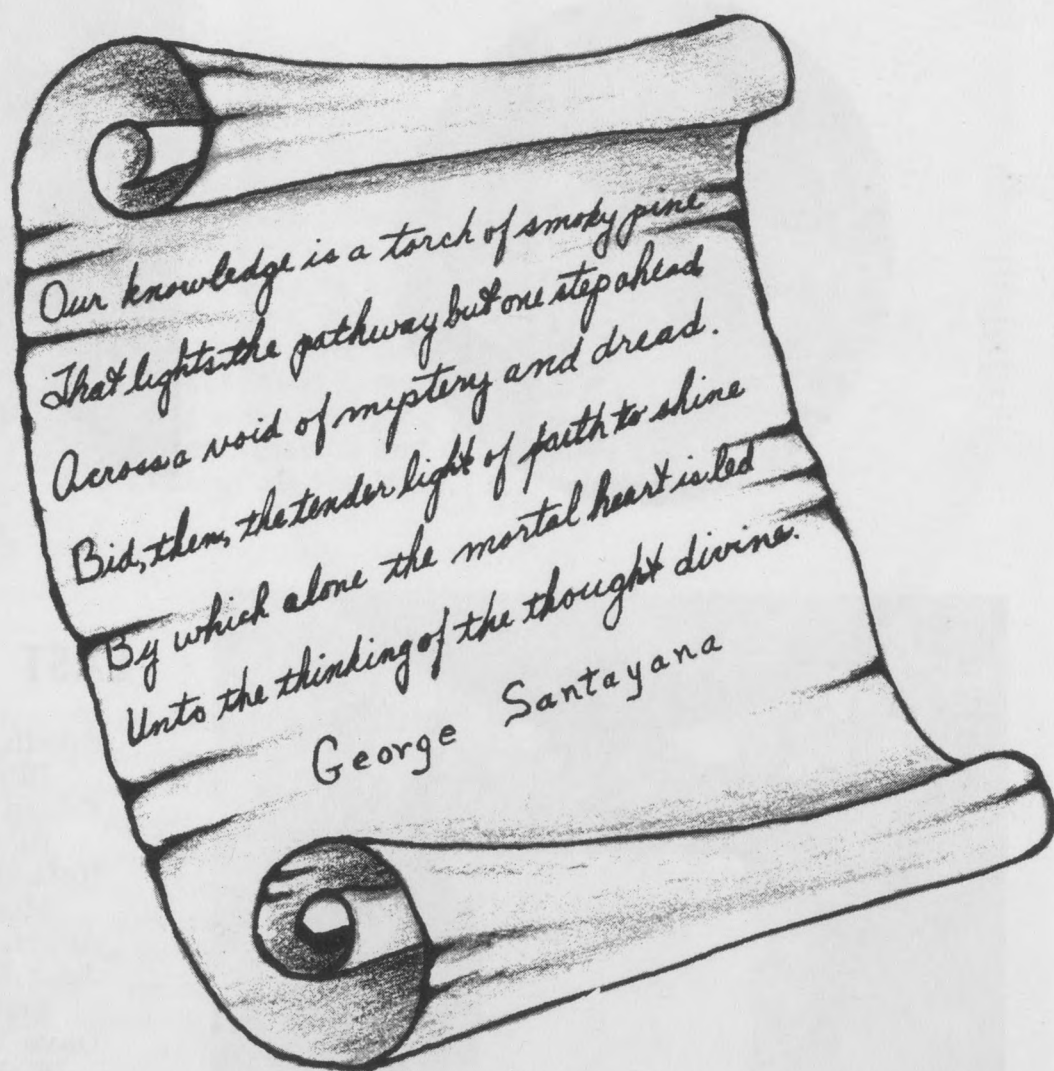 Our knowledge is a torch of smoky pine
That lights the pathway but one step ahead
Across a void of mystery and dread.
Bid, then, the tender light of faith to shine
By which alone the mortal heart is led
Unto the thinking of the thought divine.
George Santayana